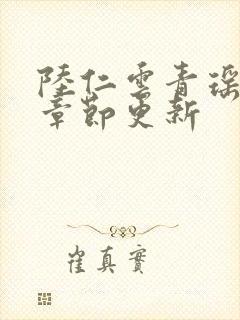 陸仁雲青瑶
章節更新
崔真實